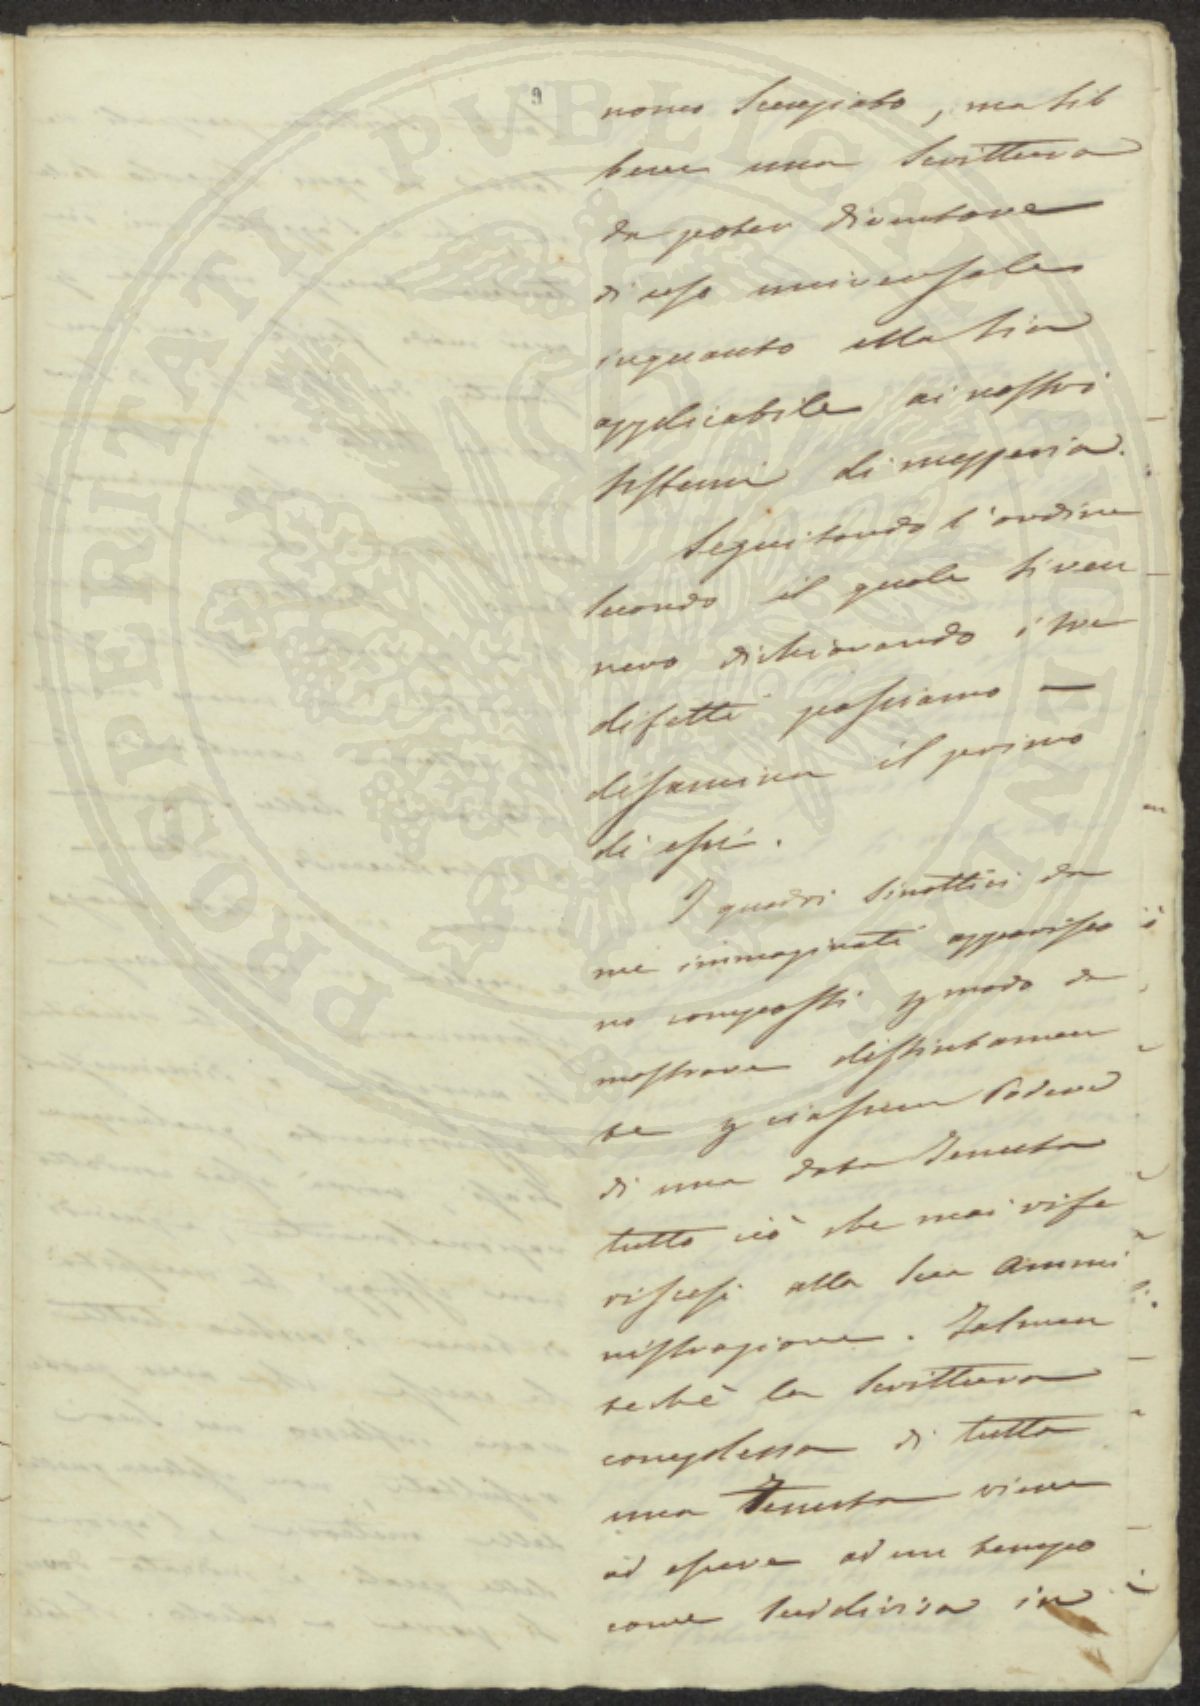 9
nomo Scempiato, ma sib
bene una Scrittura
da poter diventare
di uso universale
inquanto ella sia
applicabile ai nostri
sistemi di mezzeria.
Seguitando l'ordine
secondo il quale si ven
nero dichiarando i tre
difetti passiamo —
disamina il primo
di essi.
I quadri Sinottici da
me immaginati apparisco
no composti p modo da
mostrare distintamen
te p ciascun Podere
di una data Tenuta
tutto ciò che mai rife
riscasi alla sua Ammi
nistrazione. Talmen
techè la Scrittura
complessa di tutta
una Tenuta viene
ad essere ad un tempo
come suddivisa in
PROSPERITATI PUBLICAE